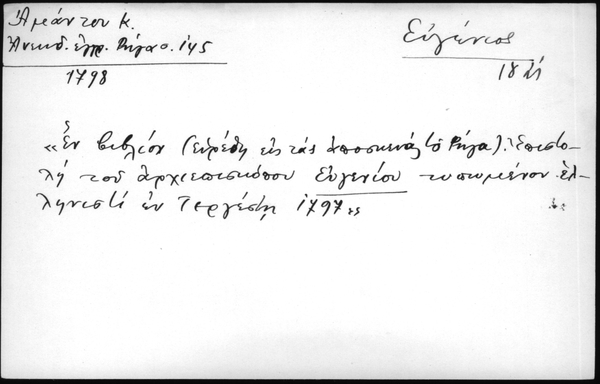 Ἀμάντου Κ.
Ἀνεκδ. ἔγγρ. Ρήγα σ. 145
1798
Εὐγένιος
«Ἓν βιβλίον (εὑρέθη εἰς τὰς ἀποσκευὰς τοῦ Ρήγα). Ἐπιστο-
λὴ τοῦ ἀρχιεπισκόπου Εὐγενίου τυπωμένον ἑλ-
ληνιστὶ ἐν Τεργέστῃ 1797»